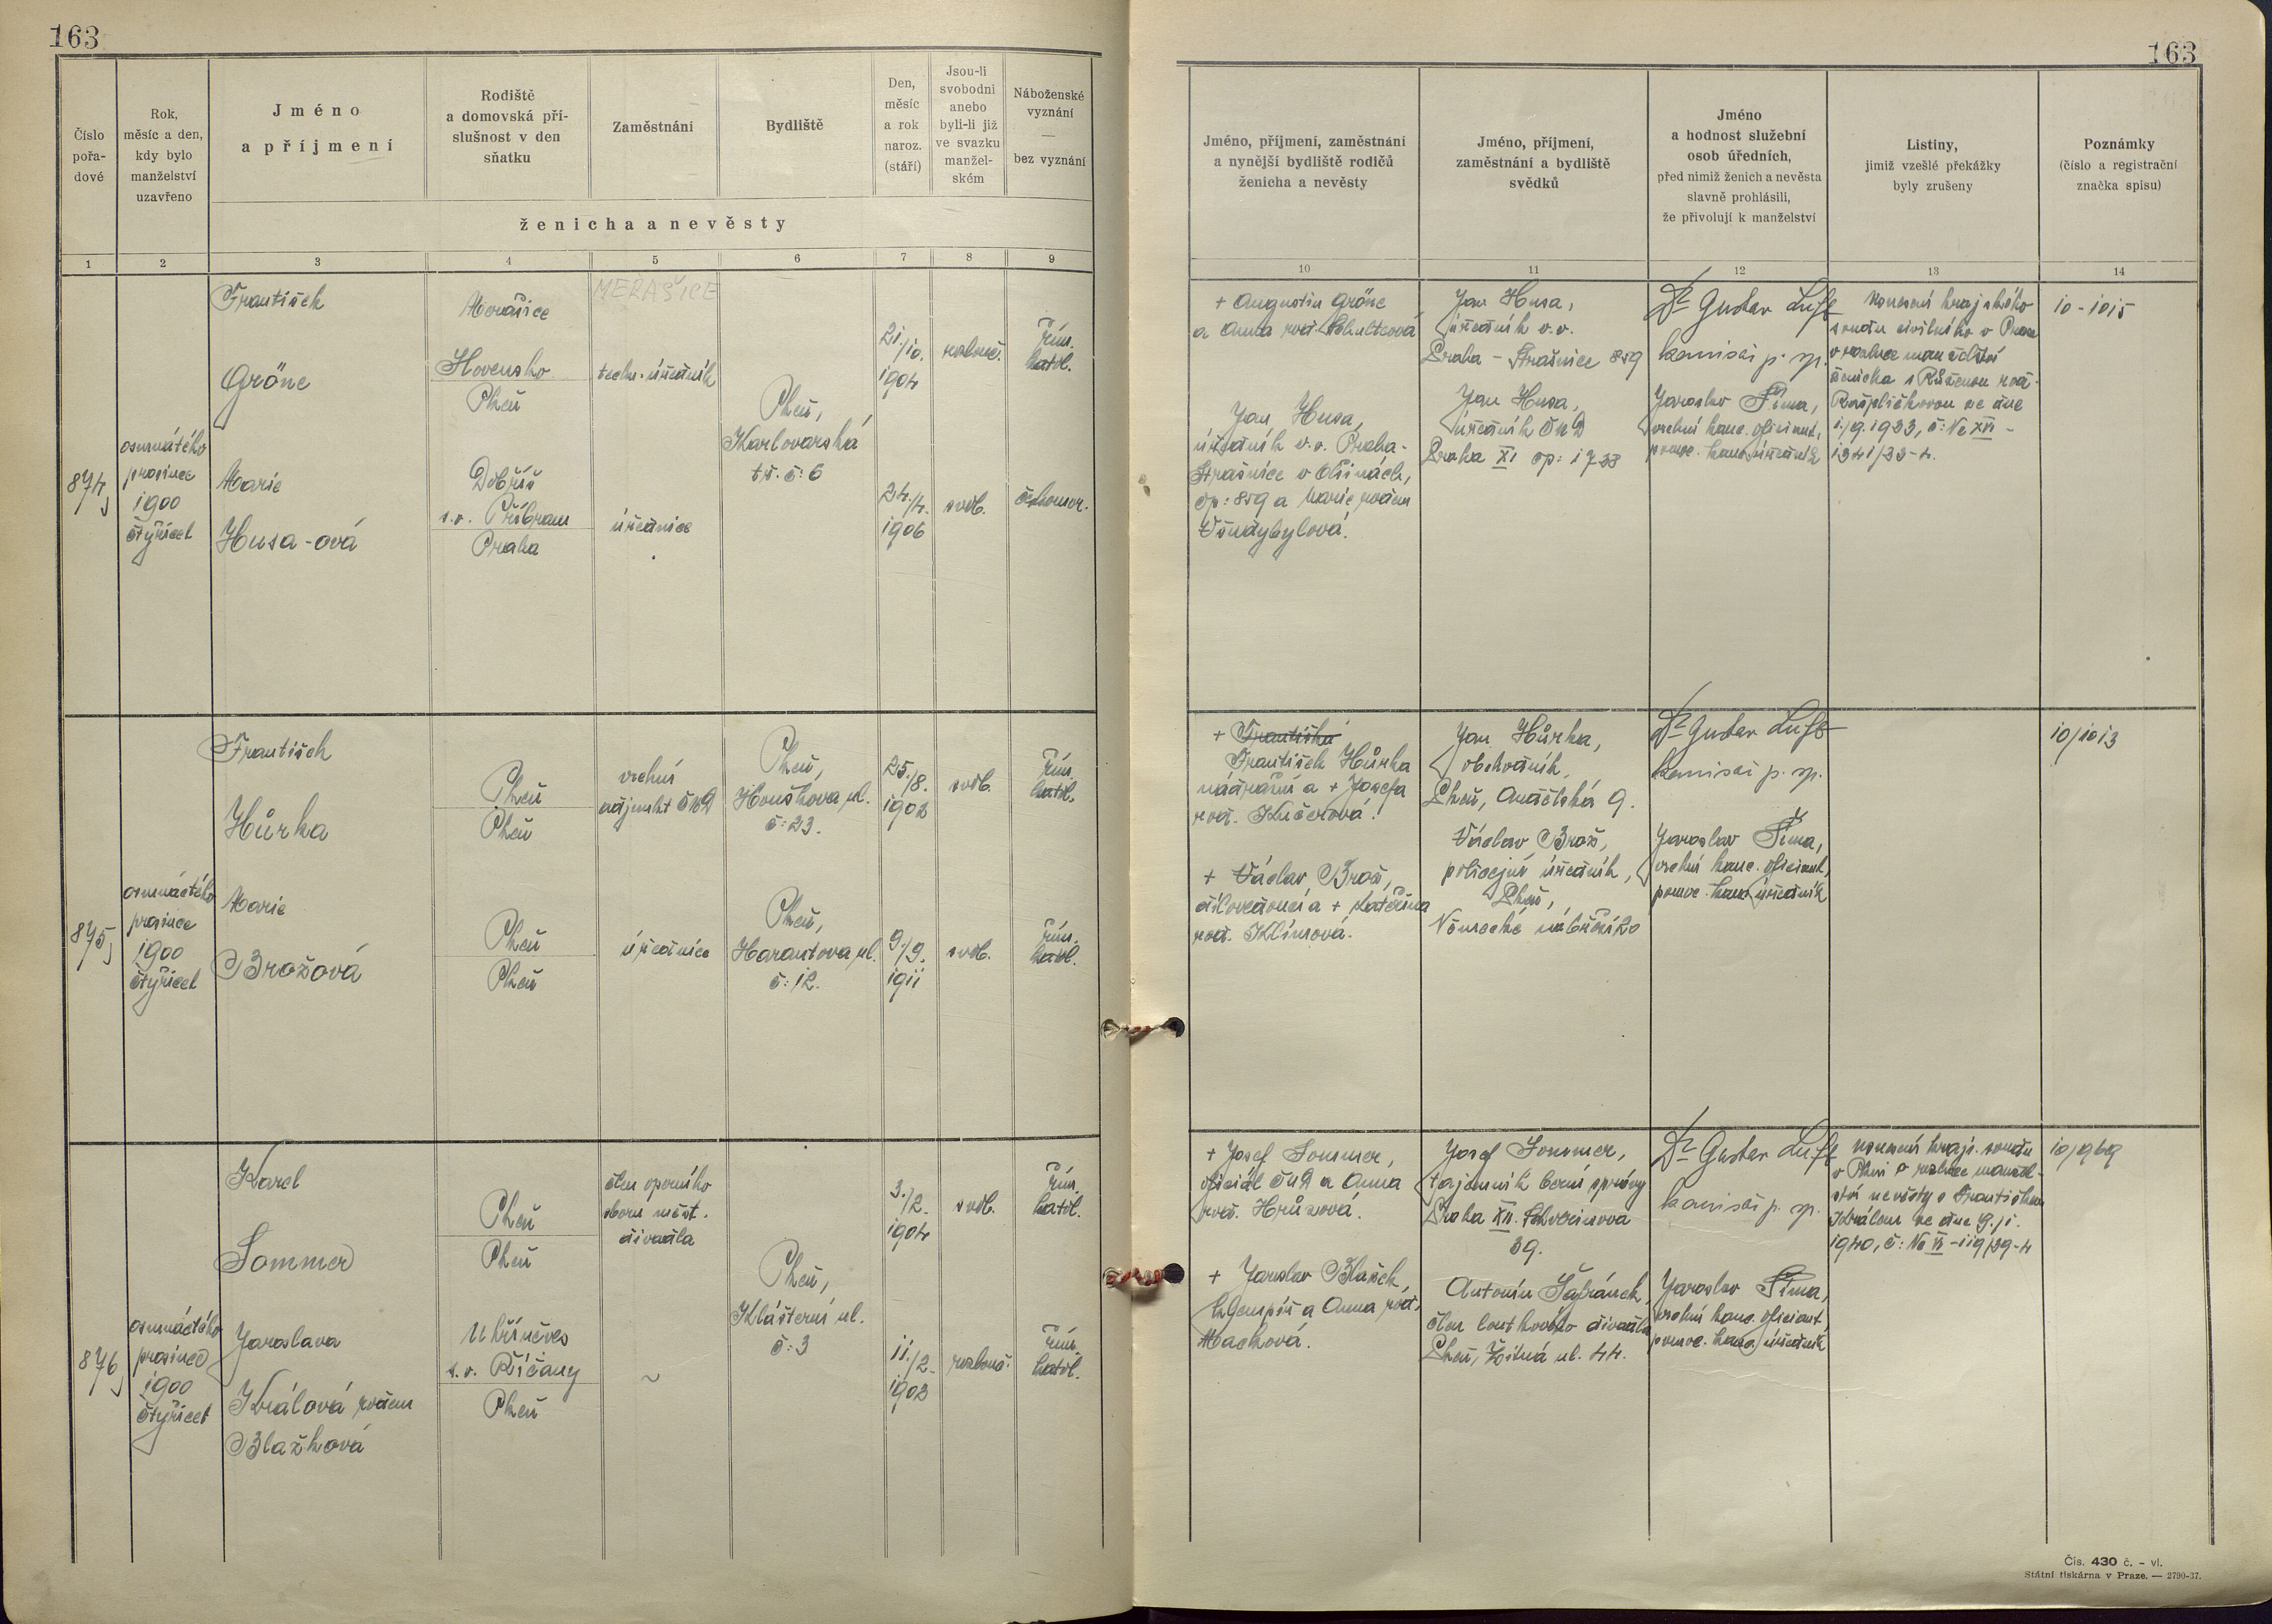 163
163
Číslo pořa-dové
Rok, měsíc a den, kdy bylo manželství uzavřeno
Jméno a příjmení
Rodiště a domovská pří-slušnost v den sňatku
Zaměstnání
Bydliště
Den, měsíc a rok naroz. (stáří)
Jsou-li svobodni anebo byli-li již ve svazku manžel-ském
Náboženské vyznání — bez vyznání
ženicha a nevěsty
1 2 3 4 5 6 7 8 9
Jméno, příjmení, zaměstnání a nynější bydliště rodičů ženicha a nevěsty
Jméno, příjmení, zaměstnání a bydliště svědků
Jméno a hodnost služební osob úředních, před nimiž ženich a nevěsta slavně prohlásili, že přivolují k manželství
Listiny, jimiž vzešlé překážky byly zrušeny
Poznámky (číslo a registrační značka spisu)
10 11 12 13 14
874
osmnáctého
prosince
1900
čtyřicet
František
Gröne
Marie
Husa-ová
MERAŠICE
Merašice
Slovensko
Plzeň
Dobříš
s.o. Příbram
Praha
techn. úředník
úřednice
Plzeň,
Karlovarská
tř. č: 6
21./10.
1904
24./4.
1906
rozlouč.
svob.
řím.
katol.
českomor.
+ Augustin Gröne
a Anna roz. Schultzová
Jan Husa,
úředník v.v. Praha-
Strašnice v Olšinách,
čp: 859 a Marie rozen
Všudybylová.
Jan Husa,
úředník v.v.
Praha - Strašnice 859
Jan Husa,
úředník ČKD
Praha XI čp: 1738
Dr Gustav Luft
komisař p. sp.
Jaroslav Šíma,
vrchní kanc. oficiant,
pomoc. kanc. úředník
Usnesení krajského
soudu civilního v Praze
o rozluce manželství
ženicha s Růženou roz.
Rašpličkovou ze dne
1./9. 1933, č: Nc XVI -
1341/33-4.
10-1015
875
osmnáctého
prosince
1900
čtyřicet
František
Hůrka
Marie
Brožová
Plzeň
Plzeň
Plzeň
Plzeň
vrchní
adjunkt ČSD
úřednice
Plzeň,
Houškova ul.
č: 23.
Plzeň,
Harantova ul.
č: 12.
25./8.
1902
9./9.
1911
svob.
svob.
řím.
katol.
řím.
katol.
+ Františka
František Hůrka
nádražní a + Josefa
roz. Kučerová.
+ Václav Brož,
dílovedoucí a + Kateřina
roz. Klímová.
Jan Hůrka,
obchodník,
Plzeň, Andělská 9.
Václav Brož,
policejní úředník,
Plzeň,
Německé nábřežíko
Dr Gustav Luft
komisař p. sp.
Jaroslav Šíma,
vrchní kanc. oficiant,
pomoc. kanc. úředník
10/1013
876
osmnáctého
prosince
1900
čtyřicet
Karel
Sommer
Jaroslava
Králová rozen
Blažková
Plzeň
Plzeň
Uhříněves
s. o. Říčany
Plzeň
člen operního
sboru měst.
divadla
~
Plzeň,
Klášterní ul.
č: 3
3./2.
1904
11./2.
1903
svob.
rozlouč.
řím.
katol.
řím.
katol.
+ Josef Sommer,
oficiál ČSD a Anna
roz. Hrůzová.
+ Jaroslav Blažek,
klempíř a Anna roz.
Machová.
Josef Sommer,
tajemník berní správy
Praha XII. Schwerinova
39.
Antonín Šafránek,
člen loutkového divadla
Plzeň, Žitná ul. 44.
Dr Gustav Luft
komisař p. sp.
Jaroslav Šíma,
vrchní kanc. oficiant
pomoc. kanc. úředník
Usnesení krajs. soudu
v Plzni o rozluce manžel-
ství nevěsty s Františkem
Králem ze dne 9./1.
1940, č: Nc VI -119/39-4
10/969
Čís. 430 č. - vl.
Státní tiskárna v Praze. — 2790-37.